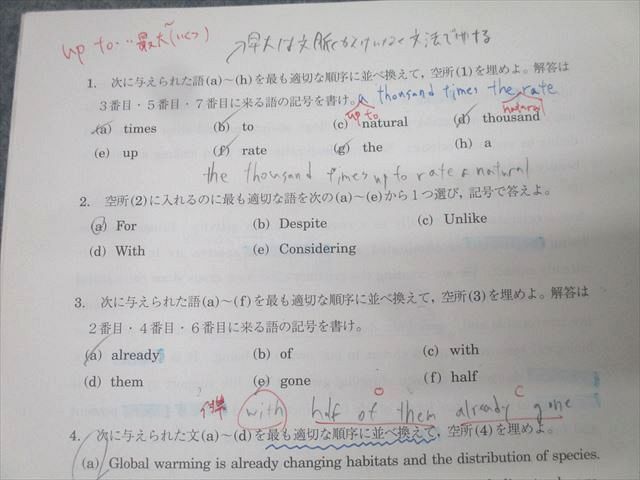 up to … 最大~(いくつ)
→早大は文脈 文法で解ける
1. 次に与えられた語(a)～(h)を最も適切な順序に並べ換えて，空所(1)を埋めよ。解答は
3番目・5番目・7番目に来る語の記号を書け。 a thousand times the rate
up to natural
(a) times (b) to (c) natural (d) thousand
(e) up (f) rate (g) the (h) a
the thousand times up to rate a natural
2. 空所(2)に入れるのに最も適切な語を次の(a)～(e)から1つ選び，記号で答えよ。
(a) For (b) Despite (c) Unlike
(d) With (e) Considering
3. 次に与えられた語(a)～(f)を最も適切な順序に並べ換えて，空所(3)を埋めよ。解答は
2番目・4番目・6番目に来る語の記号を書け。
(a) already (b) of (c) with
(d) them (e) gone (f) half
O C
with half of them already gone
4. 次に与えられた文(a)～(d)を最も適切な順序に並べ換えて，空所(4)を埋めよ。
(a) Global warming is already changing habitats and the distribution of species.